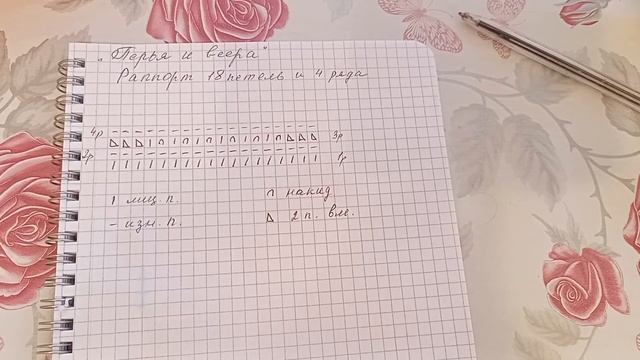 "Перья и веера"
Раппорт 18 петель и 4 ряда
4р - - - - - - - - - - - - - - - - - -
Δ Δ Δ ı ∩ ı ∩ ı ∩ ı ∩ ı ∩ ı ∩ Δ Δ Δ 3р
2р - - - - - - - - - - - - - - - - - -
ı ı ı ı ı ı ı ı ı ı ı ı ı ı ı ı ı ı 1р
ı лиц. п. ∩ накид
- изн. п. Δ 2 п. вм.